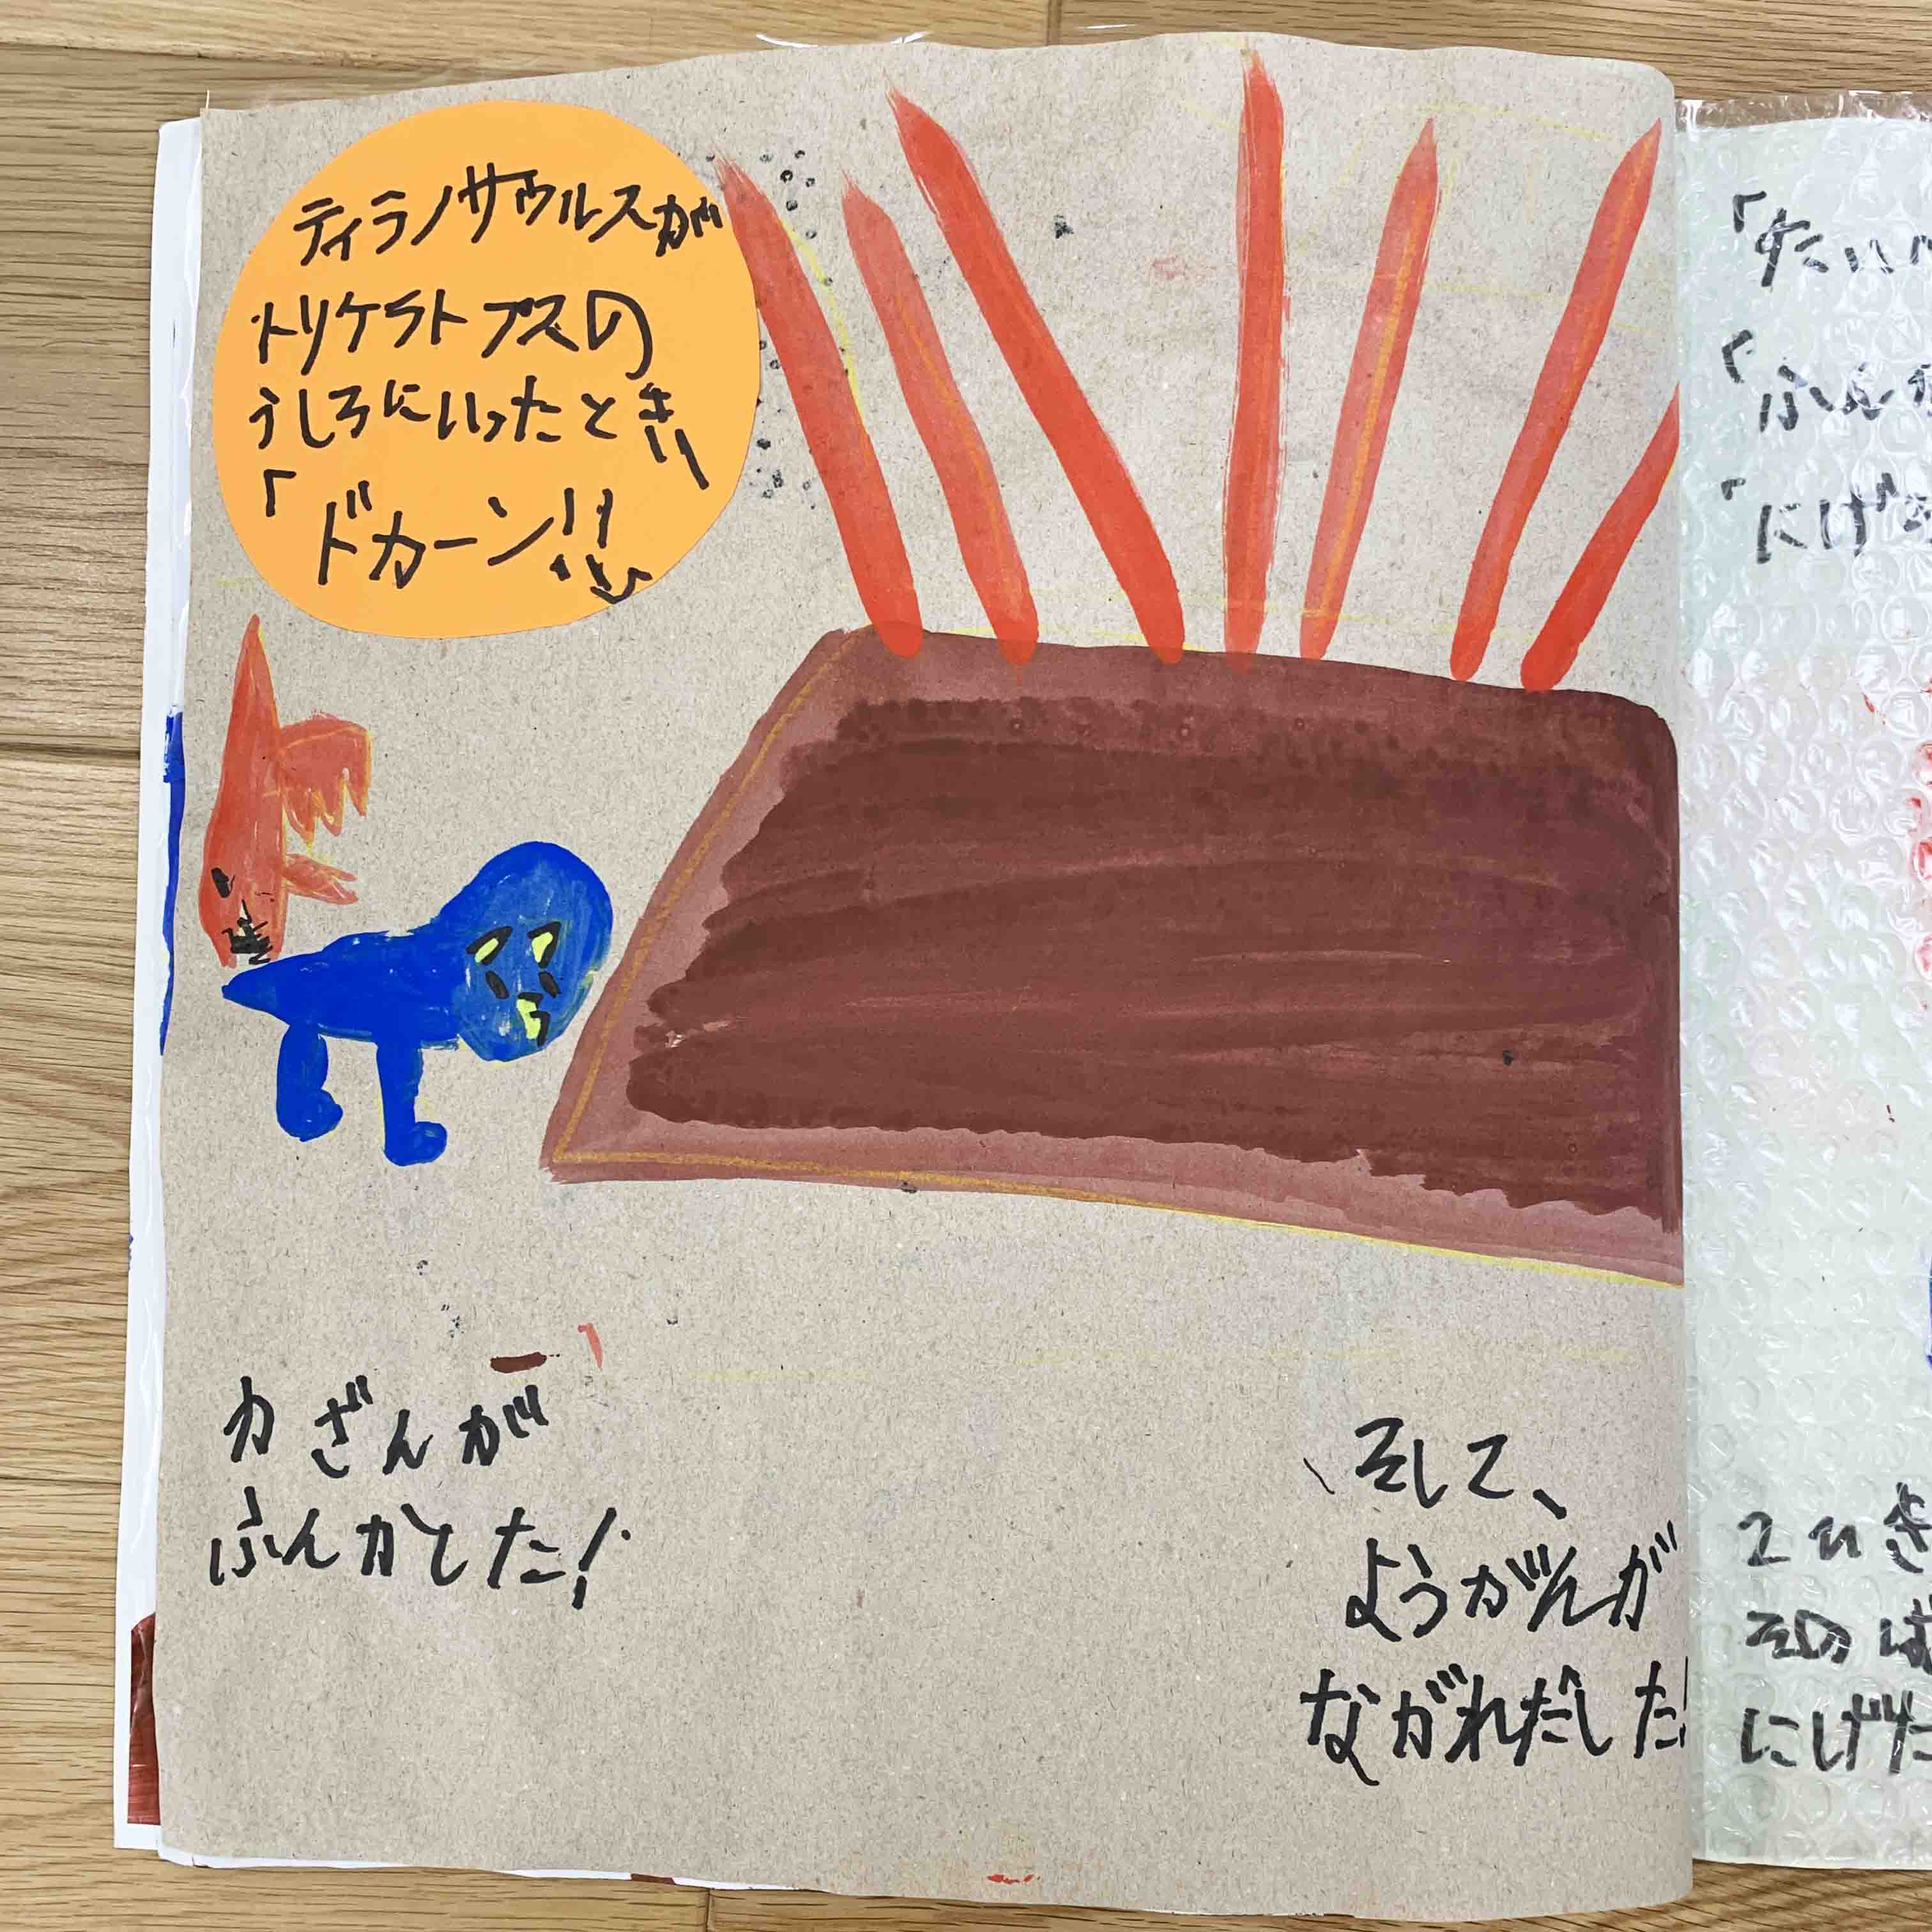 ティラノサウルスが
トリケラトプスの
うしろにいったとき!!
「ドカーン!!」
カざんが
ふんかした!
そして、
ようがんが
ながれだした!
「たい
「ふんか
「にげ
2ひき
そのば
にげた